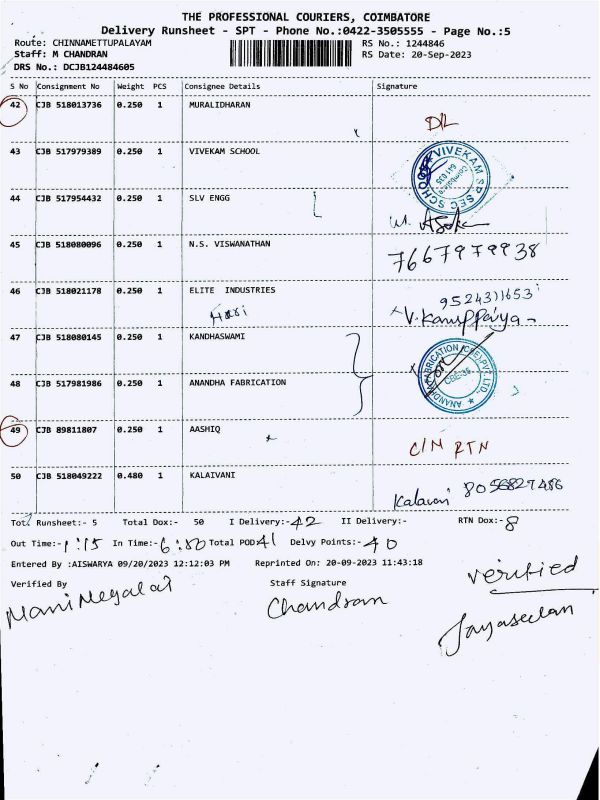 THE PROFESSIONAL COURIERS, COIMBATORE
Delivery Runsheet - SPT - Phone No.:0422-3505555 - Page No.:5
Route: CHINNAMETTUPALAYAM RS No.: 1244846
Staff: M CHANDRAN RS Date: 20-Sep-2023
DRS No.: DCJB124484605
S No Consignment No Weight PCS Consignee Details Signature
42 CJB 518013736 0.250 1 MURALIDHARAN
D/L
43 CJB 517979389 0.250 1 VIVEKAM SCHOOL
VIVEKAM SR. SEC. SCHOOL
Coimbatore
641 035
44 CJB 517954432 0.250 1 SLV ENGG
45 CJB 518080096 0.250 1 N.S. VISWANATHAN
7667979938
46 CJB 518021178 0.250 1 ELITE INDUSTRIES
Hari 9524311653
V. Karuppaiya
47 CJB 518080145 0.250 1 KANDHASWAMI
48 CJB 517981986 0.250 1 ANANDHA FABRICATION
ANANDHA FABRICATION (CBE) PVT. LTD.
CBE-35
49 CJB 89811807 0.250 1 AASHIQ
C/N RTN
50 CJB 518049222 0.480 1 KALAIVANI
Kalaivani 8056827486
Tot. Runsheet:- 5 Total Dox:- 50 I Delivery:- 42 II Delivery:- RTN Dox:- 8
Out Time:- 1:15 In Time:- 6:80 Total POD 41 Delvy Points:- 40
Entered By :AISWARYA 09/20/2023 12:12:03 PM Reprinted On: 20-09-2023 11:43:18
Verified By Staff Signature verified
Mani Megalai Chandran Jayaseelan